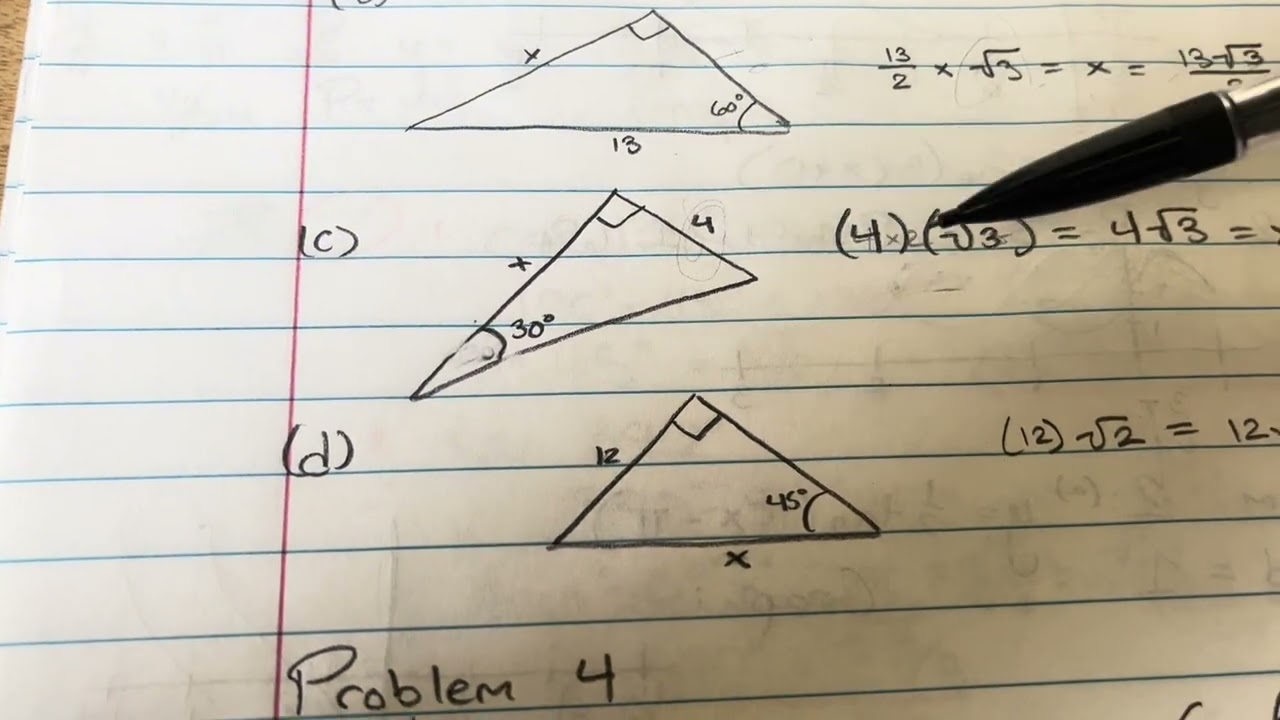 x
60°
13
13/2 × √3 = x = 13√3
(c)
x
4
30°
(4)(√3) = 4√3 =
(d)
12
45°
x
(12)√2 = 12
Problem 4